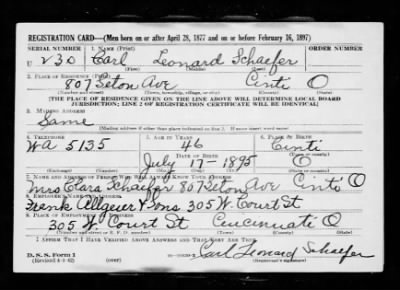 REGISTRATION CARD—(Men born on or after April 28, 1877 and on or before February 16, 1897)
SERIAL NUMBER 1. NAME (Print) ORDER NUMBER
U 230 Carl Leonard Schaefer
(First) (Middle) (Last)
2. PLACE OF RESIDENCE (Print)
807 Seton Ave Cinti O
(Number and street) (Town, township, village, or city) (County) (State)
[THE PLACE OF RESIDENCE GIVEN ON THE LINE ABOVE WILL DETERMINE LOCAL BOARD
JURISDICTION; LINE 2 OF REGISTRATION CERTIFICATE WILL BE IDENTICAL]
3. MAILING ADDRESS
Same
[Mailing address if other than place indicated on line 2. If same insert word same]
4. TELEPHONE 5. AGE IN YEARS 6. PLACE OF BIRTH
WA 5135 46 Cinti
DATE OF BIRTH (Town or county)
July 17 1895 O
(Mo.) (Day) (Yr.) (State or country)
7. NAME AND ADDRESS OF PERSON WHO WILL ALWAYS KNOW YOUR ADDRESS
Mrs Clara Schaefer 807 Seton Ave Cinti O
8. EMPLOYER'S NAME AND ADDRESS
Frank Allgeier & Sons 305 W. Court St.
9. PLACE OF EMPLOYMENT OR BUSINESS
305 W. Court St Cincinnati O
(Number and street or R. F. D. number) (Town) (County) (State)
I AFFIRM THAT I HAVE VERIFIED ABOVE ANSWERS AND THAT THEY ARE TRUE.
D. S. S. Form 1
(Revised 4-1-42) (over) Carl Leonard Schaefer
(Registrant's signature)